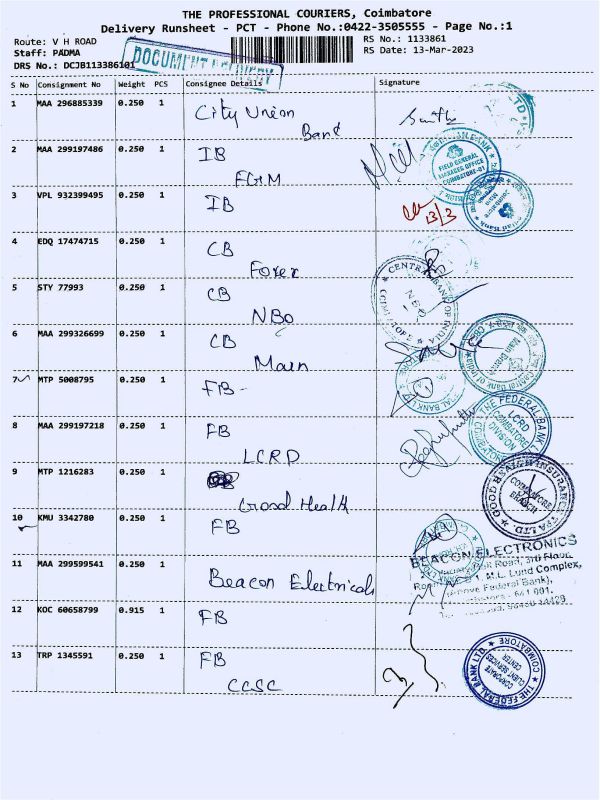 THE PROFESSIONAL COURIERS, Coimbatore
Delivery Runsheet - PCT - Phone No.:0422-3505555 - Page No.:1
Route: V H ROAD
RS No.: 1133861
Staff: PADMA
RS Date: 13-Mar-2023
DRS No.: DCJB113386101
DOCUMENT DELIVERY
S No Consignment No Weight PCS Consignee Details Signature
1 MAA 296885339 0.250 1 City Union
Bank
2 MAA 299197486 0.250 1 IB
FGM
FIELD GENERAL
MANAGERS OFFICE
COIMBATORE-01
3 VPL 932399495 0.250 1 IB
13/3
4 EDQ 17474715 0.250 1 CB
Forex
5 STY 77993 0.250 1 CB
NBO
CENTRAL BANK OF INDIA
6 MAA 299326699 0.250 1 CB
Main
Central Bank of India
7 MTP 5008795 0.250 1 FB-
8 MAA 299197218 0.250 1 FB
LCRD
THE FEDERAL BANK
LCRD
COIMBATORE
DIVISION
9 MTP 1216283 0.250 1
Good Health
GOOD HEALTH INSURANCE TPA LTD.
COIMBATORE
BRANCH
10 KMU 3342780 0.250 1 FB
BEACON ELECTRONICS
Road, 3rd Floor,
M.L. Lund Complex,
(Above Federal Bank),
641 001.
11 MAA 299599541 0.250 1 Beacon Electricals
12 KOC 60658799 0.915 1 FB
13 TRP 1345591 0.250 1 FB
CCSC
THE FEDERAL BANK LTD. COIMBATORE
CORPORATE
CLIENT SERVICES
CENTER